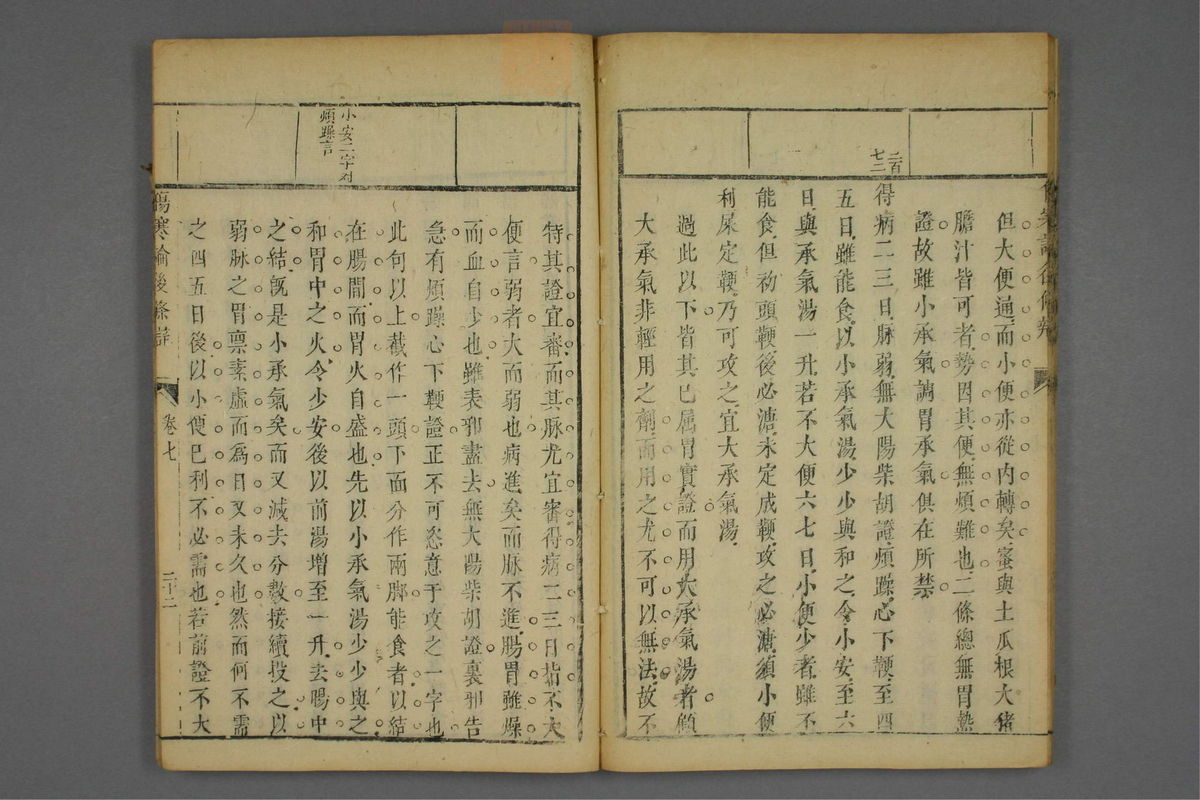 二百
七二
但大便通而小便亦從內轉矣蜜與土瓜根大猪
膽汁皆可者勢因其便無煩難也二條總無胃熱
證故雖小承氣調胃承氣俱在所禁
得病二三日脉弱無大陽柴胡證煩躁心下鞕至四
五日雖能食以小承氣湯少少與和之令小安至六
日與承氣湯一升若不大便六七日小便少者雖不
能食但初頭鞕後必溏未定成鞕攻之必溏須小便
利屎定鞕乃可攻之宜大承氣湯
過此以下皆其已屬胃實證而用大承氣湯者顧
大承氣非輕用之劑而用之尤不可以無法故不
小安二字对
煩躁言
特其證宜審而其脉尤宜審得病二三日指不大
便言弱者大而弱也病進矣而脉不進腸胃雖燥
而血自少也雖表邪盡去無大陽柴胡證裏邪告
急有煩躁心下鞕證正不可恣意于攻之一字也
此句以上截作一頭下面分作兩脚能食者以結
在腸間而胃火自盛也先以小承氣湯少少與之
和胃中之火令少安後以前湯增至一升去腸中
之結旣是小承氣矣而又減去分數接續投之以
弱脉之胃稟素虛而爲日又未久也然而何不需
之四五日後以小便已利不必需也若前證不大
傷寒論後條辯
卷七
二十二